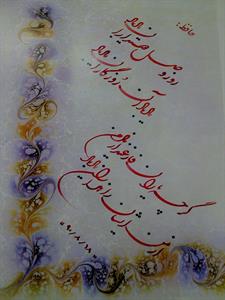 حافظ:
روز وصل دوستداران یاد باد
یاد باد آن روزگاران یاد باد
گرچه یاران فارغند از یاد من
از من ایشان را هزاران یاد باد